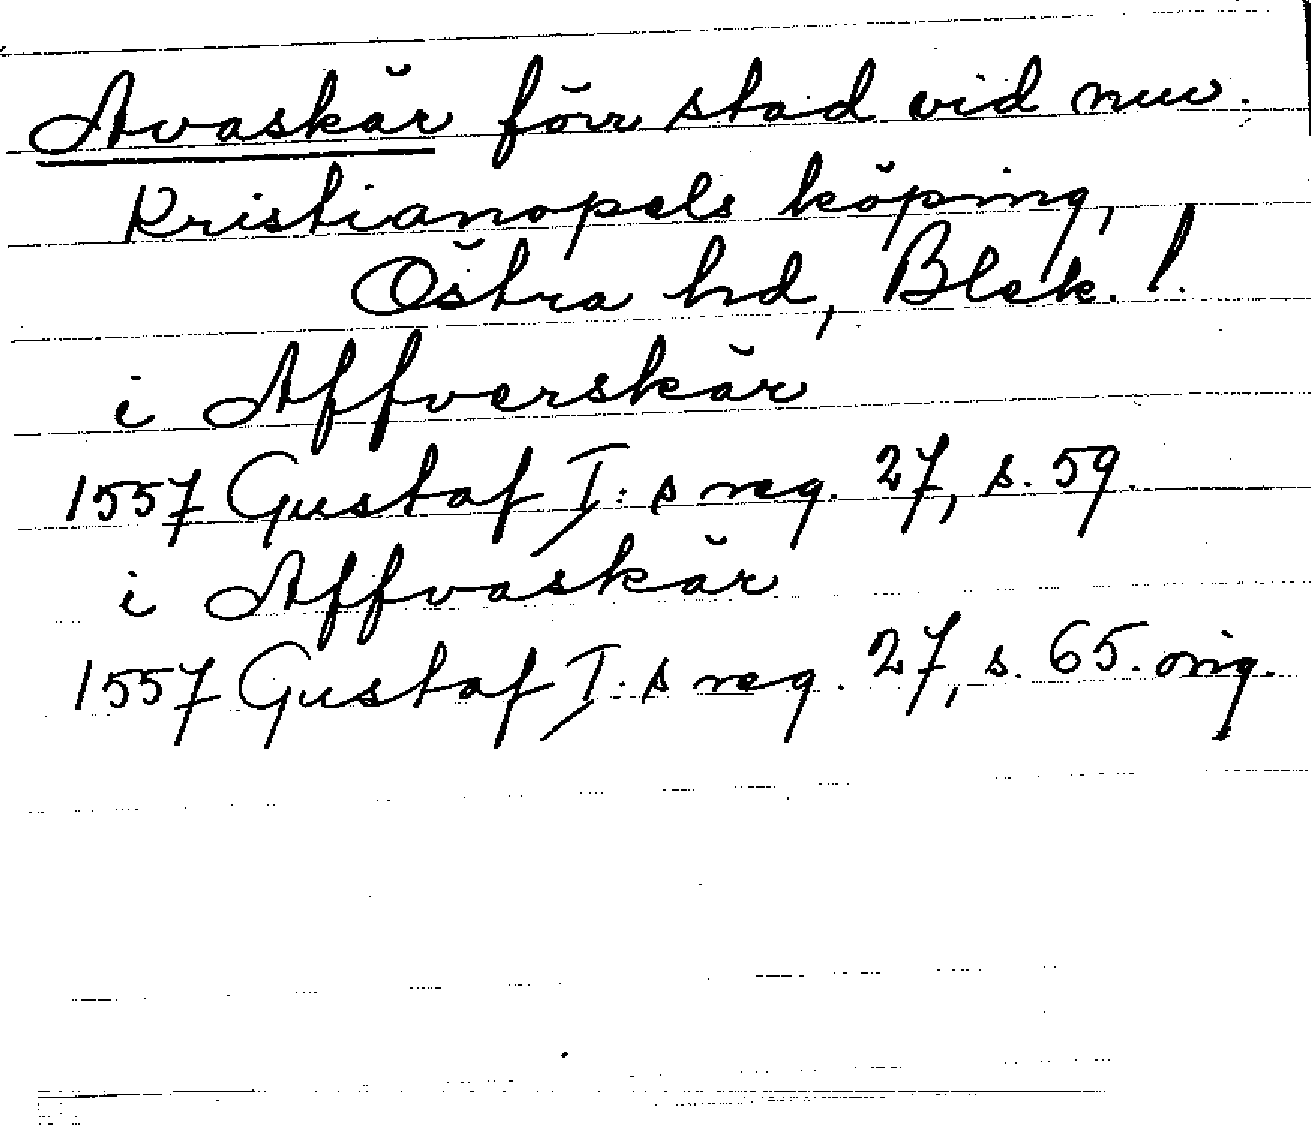 Avaskär förr stad vid nuv.
Kristianopels köping,
Östra hd, Blek. l.
i Affverskär
1557 Gustaf I:s reg. 27, s. 59.
i Affvaskär
1557 Gustaf I:s reg. 27, s. 65. orig.